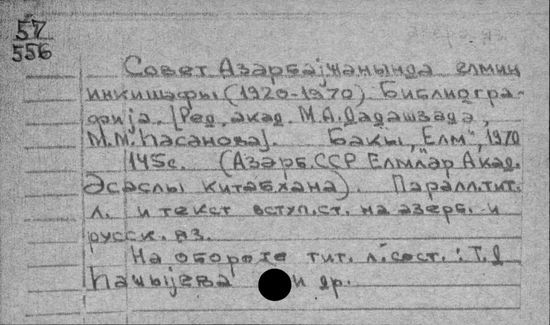 57
556
Совет Азәрбајҹанында елмин
инкишафы (1920-1970) Библиогра-
фија. [Ред. акад. М.А.Дадашзадә,
М.М.Һасанова]. Бакы, "Елм", 1970
145с. (Азәрб.ССР Елмләр Акад.
Әсаслы китабхана). Паралл.тит.
л. и текст вступ.ст. на азерб. и
русск. яз.
На обороте тит. л. сост.: Т.Я
Һаҹыјева и др.